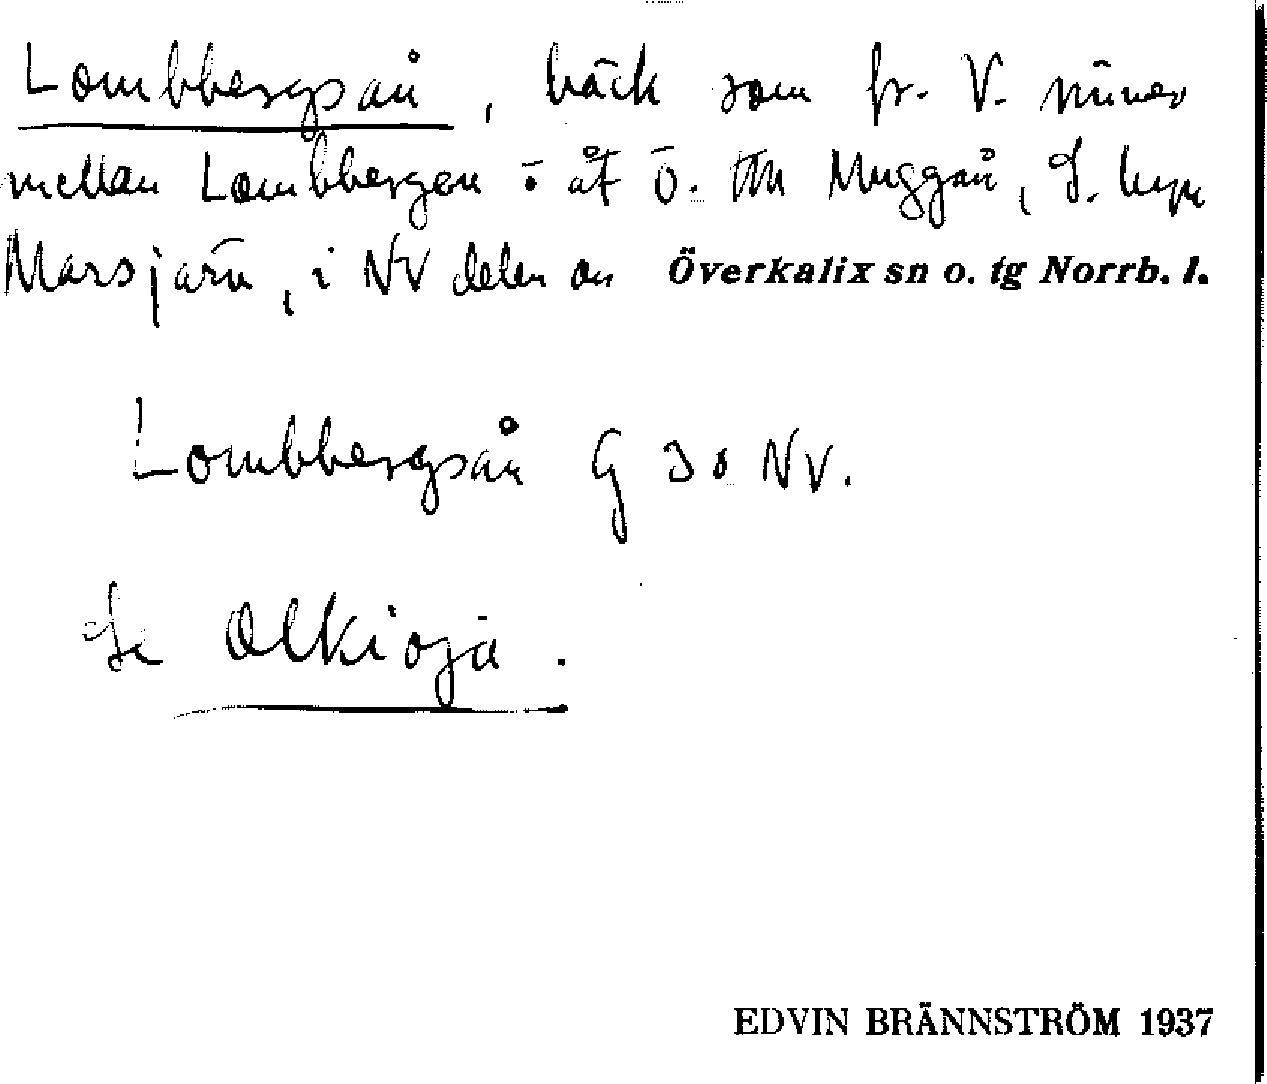 Lombbergsån, bäck som fr. V. rinner
mellan Lombbergen o åt Ö. till Muggån, S. byn
Marsjärv, i NV delen av Överkalix sn o. tg Norrb. l.
Lombbergsån G 30 NV.
Se Olkioja.
EDVIN BRÄNNSTRÖM 1937